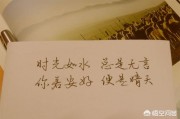 时光如水 总是无言
你若安好 便是晴天
悟空问答